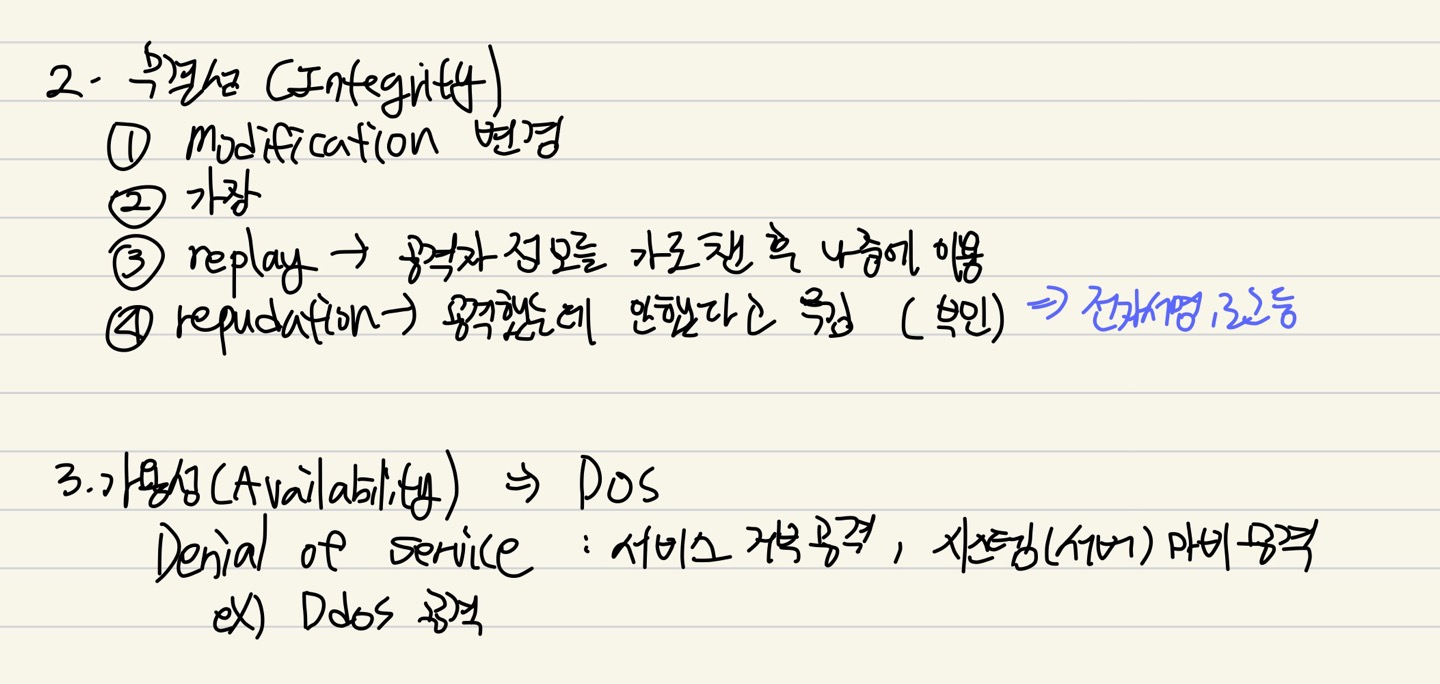 2. 무결성 (Integrity)
① Modification 변경
② 가장
③ replay → 공격자 정보를 가로챈 후 나중에 이용
④ repudation → 공격했는데 안했다고 우김 (부인) ⇒ 전자서명, 로그 등
3. 가용성(Availability) ⇒ DOS
Denial of service : 서비스 거부 공격, 시스템(서버) 마비 공격
ex) Ddos 공격